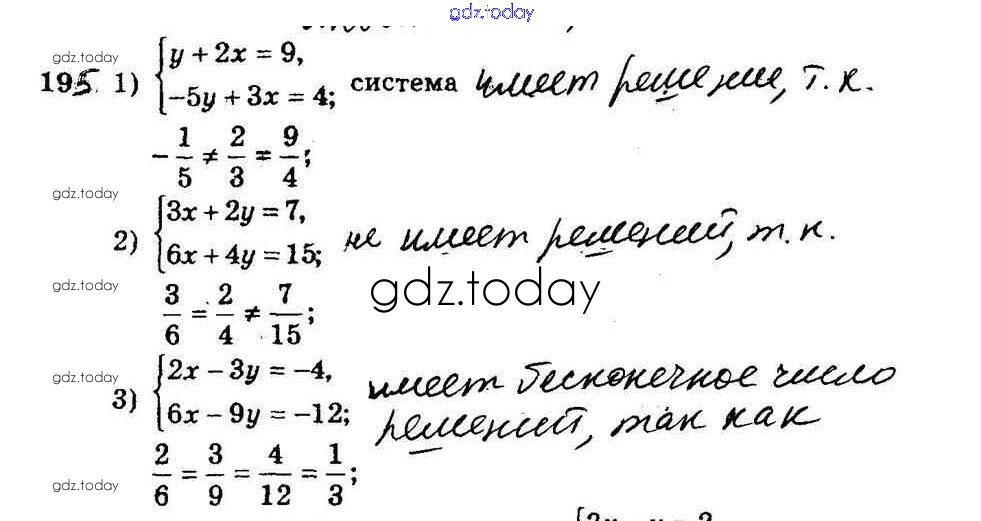 gdz.today
gdz.today
195. 1) { y + 2x = 9,
−5y + 3x = 4; система имеет решение, т. к.
− 1/5 ≠ 2/3 = 9/4;
gdz.today
2) { 3x + 2y = 7,
6x + 4y = 15; не имеет решений, т. к.
gdz.today
gdz.today
3/6 = 2/4 ≠ 7/15;
gdz.today
3) { 2x − 3y = −4, имеет бесконечное число
6x − 9y = −12; решений, так как
2/6 = 3/9 = 4/12 = 1/3;
gdz.today